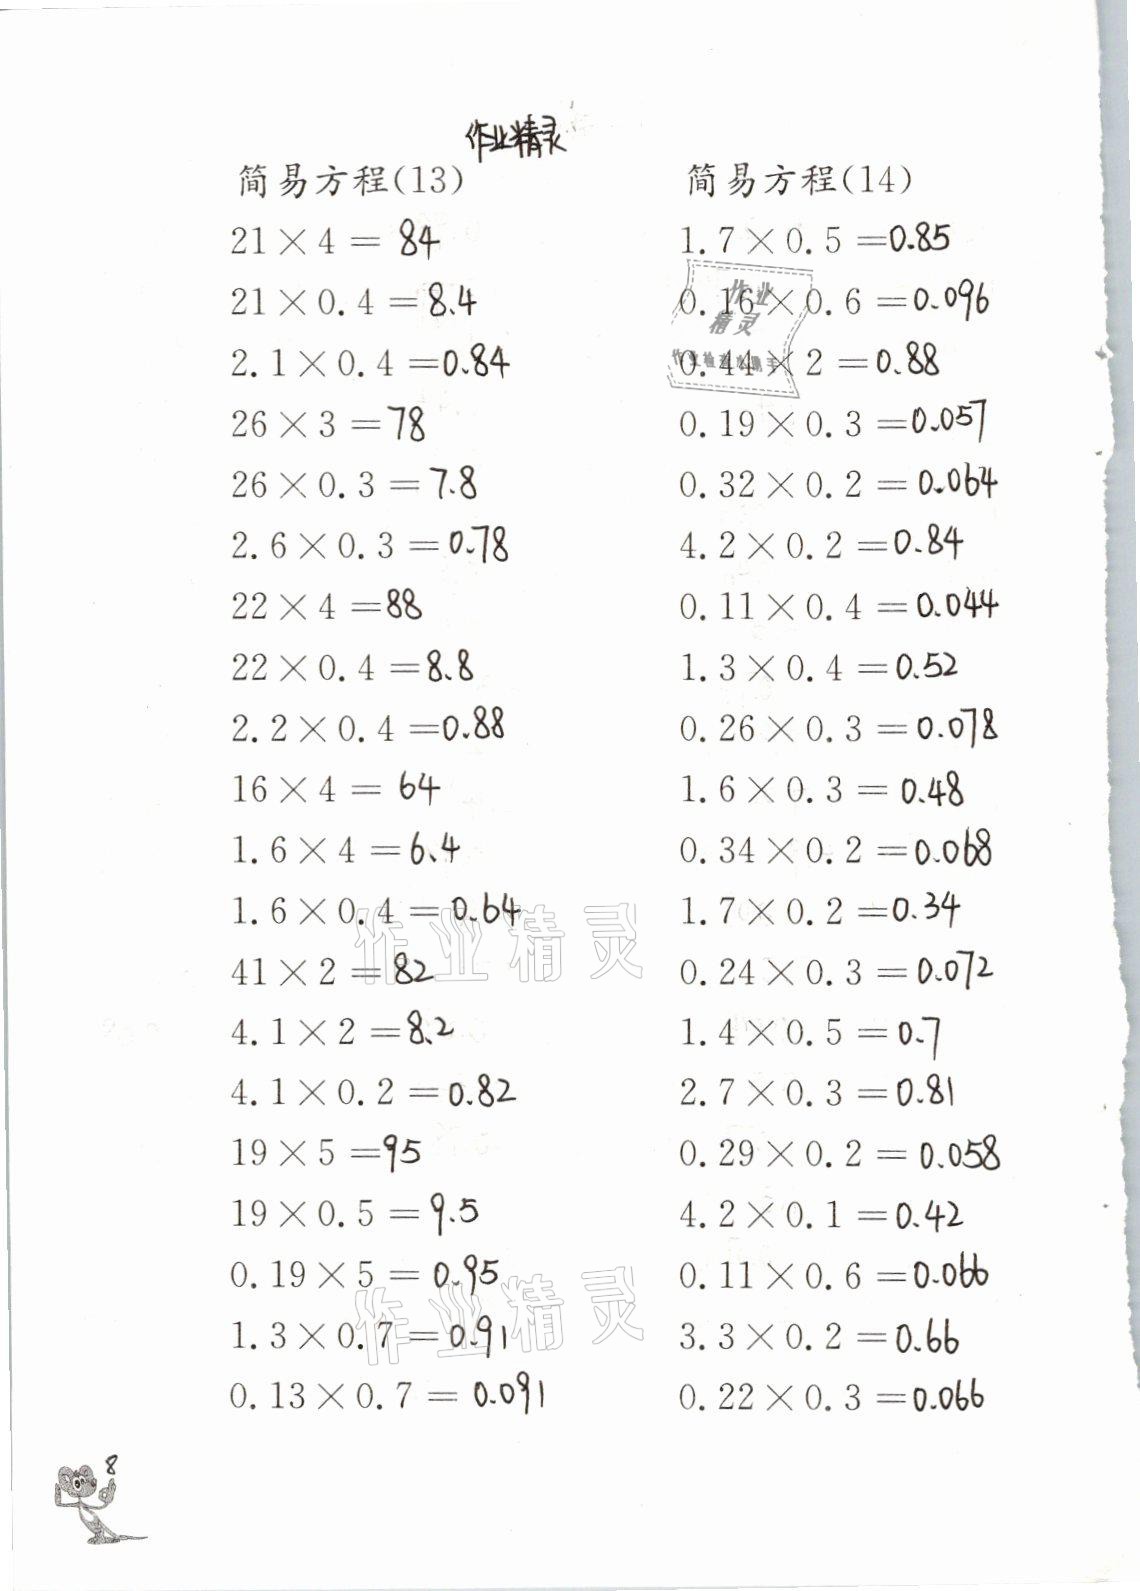 作业精灵
简易方程(13)
21×4=84
21×0.4=8.4
2.1×0.4=0.84
26×3=78
26×0.3=7.8
2.6×0.3=0.78
22×4=88
22×0.4=8.8
2.2×0.4=0.88
16×4=64
1.6×4=6.4
1.6×0.4=0.64
41×2=82
4.1×2=8.2
4.1×0.2=0.82
19×5=95
19×0.5=9.5
0.19×5=0.95
1.3×0.7=0.91
0.13×0.7=0.091
简易方程(14)
1.7×0.5=0.85
0.16×0.6=0.096
0.44×2=0.88
0.19×0.3=0.057
0.32×0.2=0.064
4.2×0.2=0.84
0.11×0.4=0.044
1.3×0.4=0.52
0.26×0.3=0.078
1.6×0.3=0.48
0.34×0.2=0.068
1.7×0.2=0.34
0.24×0.3=0.072
1.4×0.5=0.7
2.7×0.3=0.81
0.29×0.2=0.058
4.2×0.1=0.42
0.11×0.6=0.066
3.3×0.2=0.66
0.22×0.3=0.066
作业
精灵
作业精灵
作业精灵
8